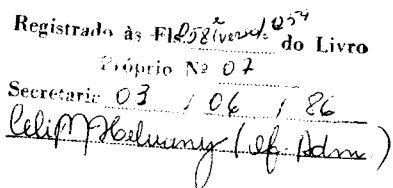 Registrado às Fls. 58 (verso) e 054 do Livro
Próprio Nº 07
Secretaria 03 / 06 / 86
(Of. Adm.)